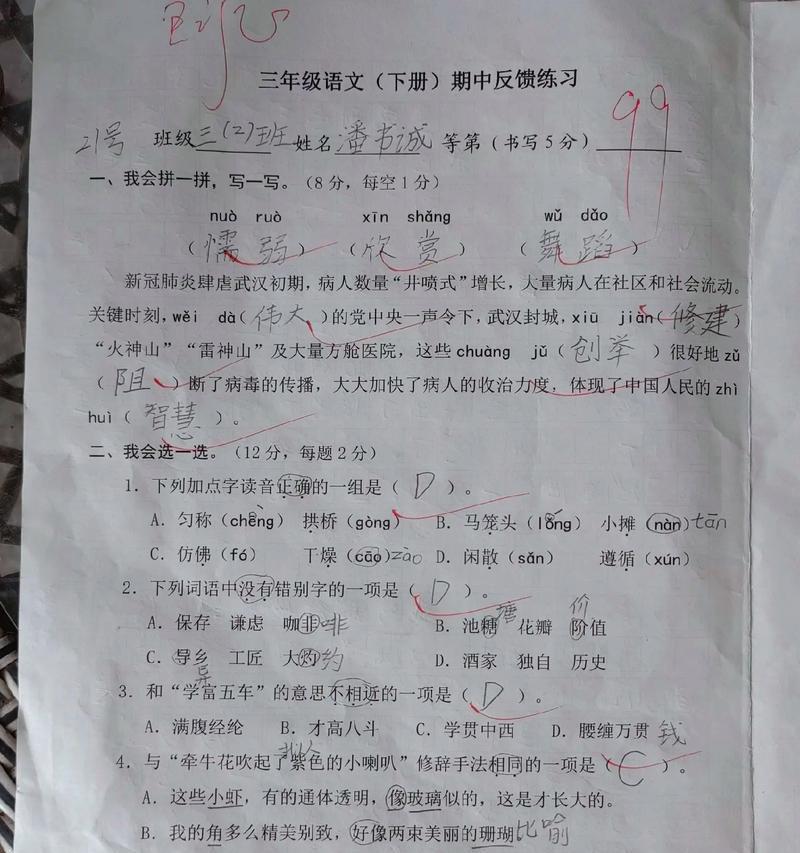 三年级语文（下册）期中反馈练习
99
21号 班级三(2)班 姓名潘书诚 等第（书写5分）
一、我会拼一拼，写一写。（8分，每空1分）
nuò ruò xīn shǎng wǔ dǎo
（懦弱）（欣赏）（舞蹈）
新冠肺炎肆虐武汉初期，病人数量“井喷式”增长，大量病人在社区和社会流动。
关键时刻，wěi dà（伟大）的党中央一声令下，武汉封城，xiū jiàn（修建）
“火神山”“雷神山”及大量方舱医院，这些chuàng jǔ（创举）很好地zǔ
（阻）断了病毒的传播，大大加快了病人的收治力度，体现了中国人民的zhì
huì（智慧）。
二、我会选一选。（12分，每题2分）
1. 下列加点字读音正确的一组是（D）。
A. 匀称（chēng） 拱桥（gòng） B. 马笼头（lǒng） 小摊（nàn）tān
C. 仿佛（fó） 干燥（cāo）zào D. 闲散（sǎn） 遵循（xún）
2. 下列词语中没有错别字的一项是（D）。
塘 价
A. 保存 谦虑 咖韭啡 B. 池糖 花瓣 阶值
C. 导乡 工匠 大灼约 D. 酒家 独自 历史
3. 和“学富五车”的意思不相近的一项是（D）。
A. 满腹经纶 B. 才高八斗 C. 学贯中西 D. 腰缠万贯 钱
拟人
4. 与“牵牛花吹起了紫色的小喇叭”修辞手法相同的一项是（C）。
A. 这些小虾，有的通体透明，像玻璃似的，这是才长大的。
B. 我的角多么精美别致，好像两束美丽的珊瑚比喻